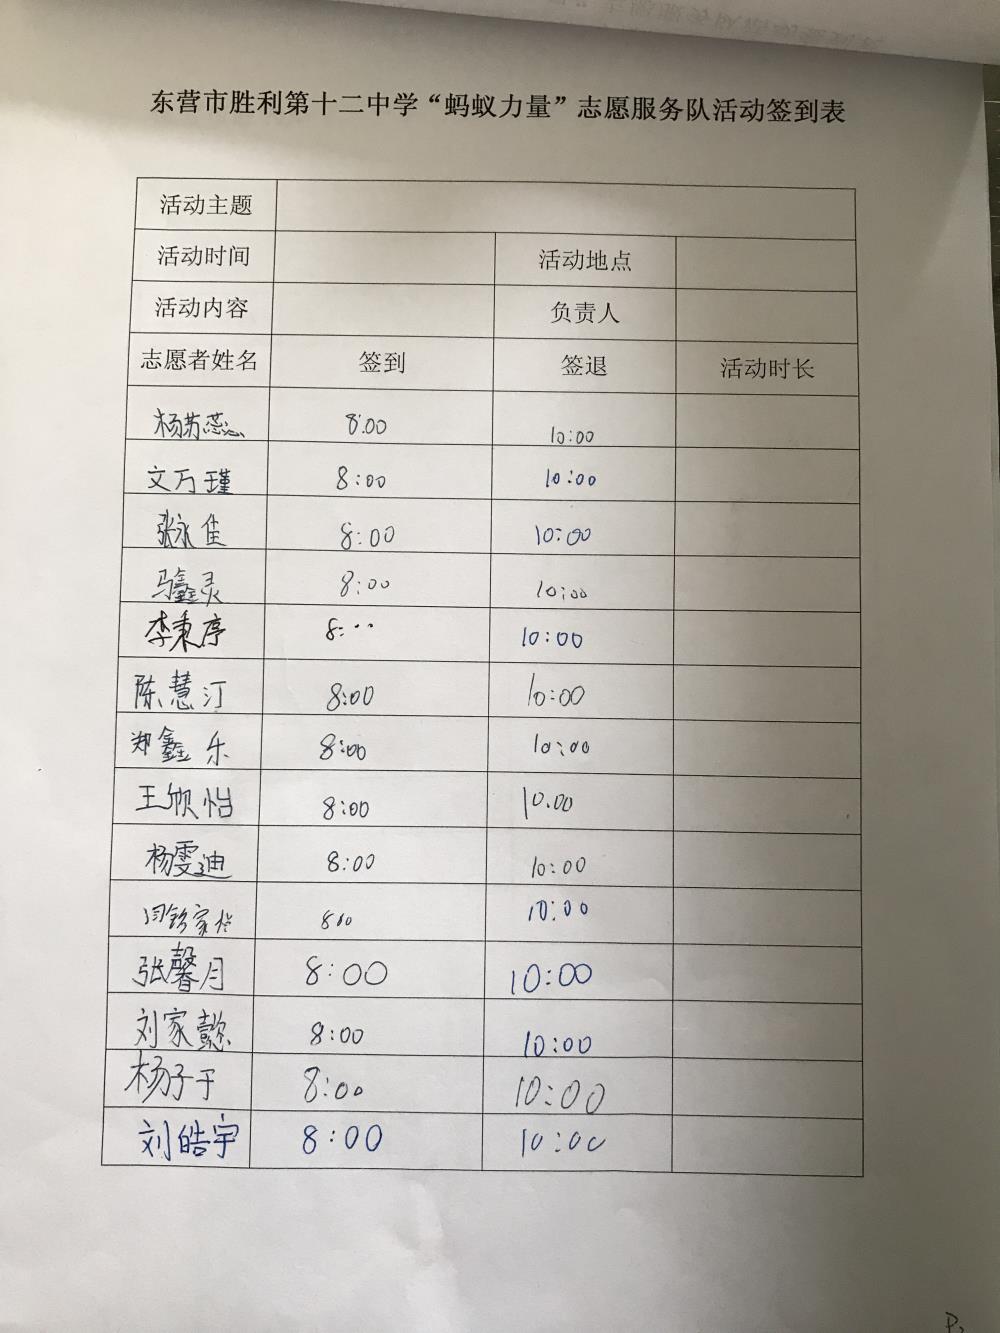 东营市胜利第十二中学“蚂蚁力量”志愿服务队活动签到表
活动主题
活动时间 活动地点
活动内容 负责人
志愿者姓名 签到 签退 活动时长
杨苏蕊 8:00 10:00
文万瑾 8:00 10:00
张永佳 8:00 10:00
马鑫灵 8:00 10:00
李秉亭 8:00 10:00
陈慧汀 8:00 10:00
郑鑫乐 8:00 10:00
王欣怡 8:00 10.00
杨雯迪 8:00 10:00
闫 家 800 10:00
张馨月 8:00 10:00
刘家懿 8:00 10:00
杨子于 8:00 10:00
刘皓宇 8:00 10:00